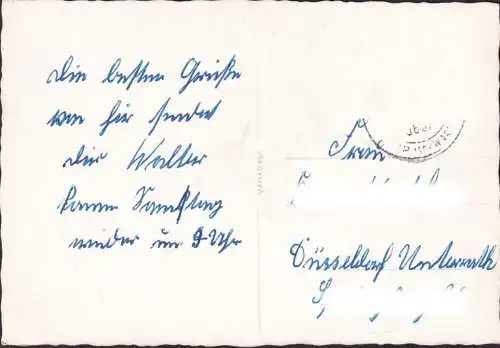 Die besten Grüße
von hir sendet
dir Walter
komme Samstag
wieder um 9 Uhr
Frau
Düsseldorf Unterrath
über